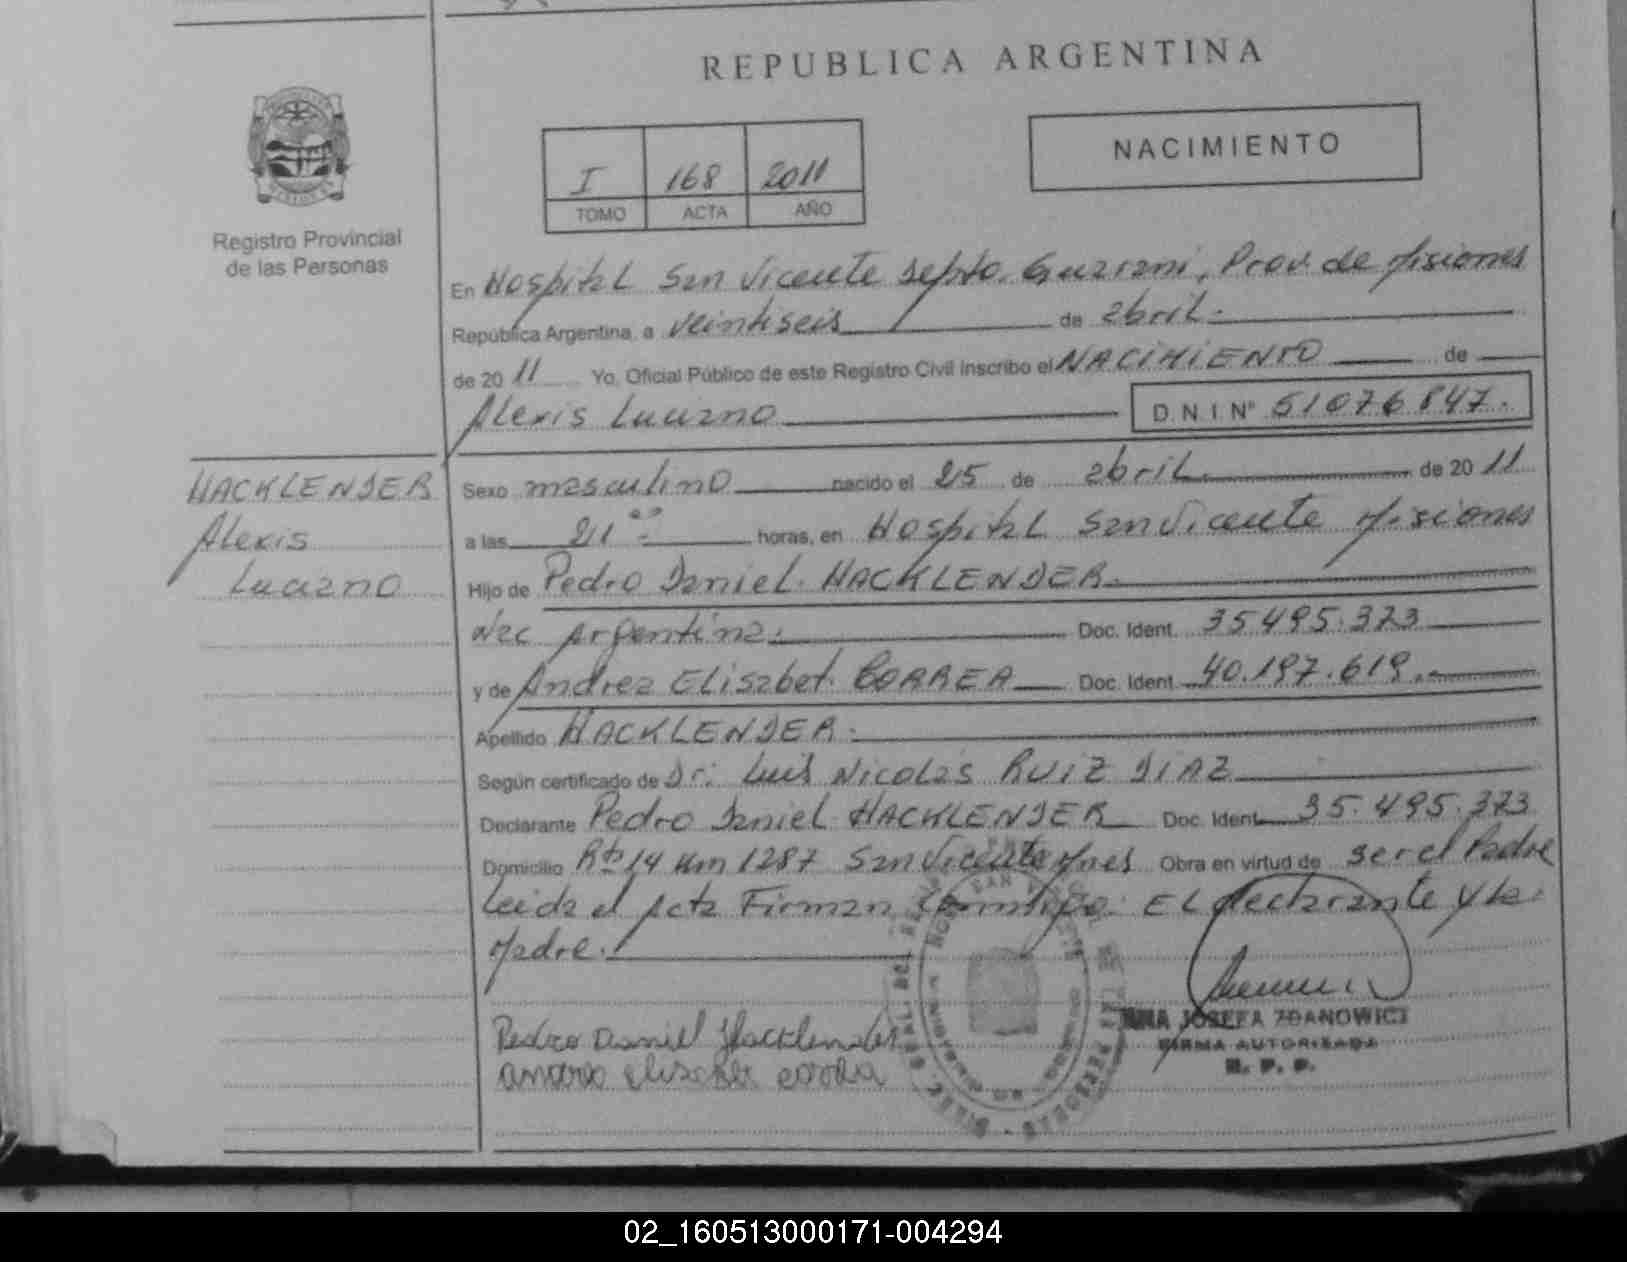 REPUBLICA ARGENTINA
NACIMIENTO
I 168 2011
TOMO ACTA AÑO
Registro Provincial
de las Personas
En Hospital San Vicente Depto. Guarani, Prov. de Misiones
República Argentina, a veintiseis de abril.
de 20 11 Yo, Oficial Público de este Registro Civil inscribo el NACIMIENTO de
Alexis Luciano D.N.I. Nº 51076847.
HACKLENDER
Alexis
Luciano
Sexo masculino nacido el 25 de abril. de 20 11
a las 21 horas, en Hospital San Vicente Misiones
Hijo de Pedro Daniel HACKLENDER.
Nac Argentina. Doc. Ident. 35.495.373
y de Andrea Elisabet CORREA Doc. Ident. 40.197.619.
Apellido HACKLENDER.
Según certificado de Dr. Luis Nicolas RUIZ DIAZ
Declarante Pedro Daniel HACKLENDER Doc. Ident. 35.495.373
Domicilio Rta 14 Km 1287 San Vicente Mnes Obra en virtud de ser el Padre
Leida el Acta Firman Conmigo: El declarante y la
Madre.
Pedro Daniel Hacklender
SAN VICENTE
JOSEFA ZDANOWICZ
FIRMA AUTORIZADA
R. P. P.
02_160513000171-004294